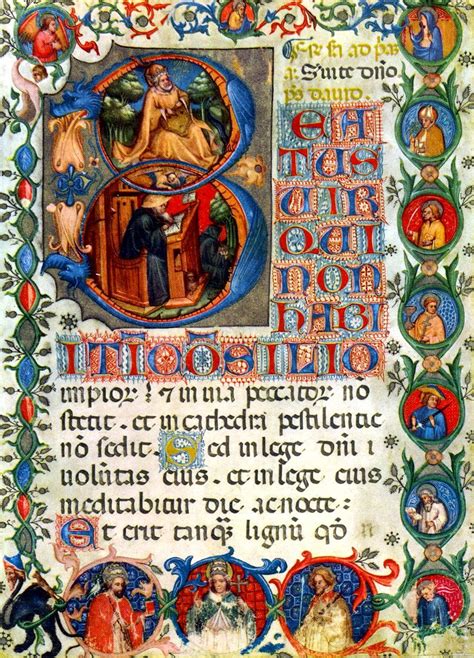 dño
DAVID
BEA
TUS
UIR
QUI
NON
HABI
IT ĪCŌSILIO
impior & in uia peccator nō
stetit. et in cathedra pestilentie
nō sedit. Sed in lege dñi
uolūtas eius. et in lege eius
meditabitur die ac nocte.
Et erit tanq̄ lignū qð